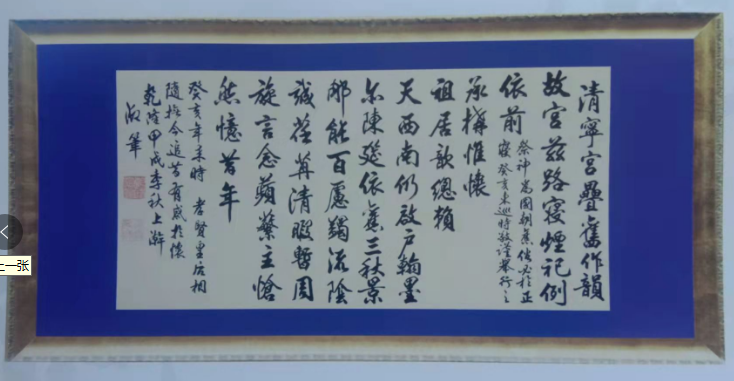 清寧宮疊舊作韻
故宮茲路寢煙祀例
依前
祭神為國朝舊俗必於正
寢癸亥東巡時敬謹舉行之
承構惟懷
祖居歆總賴
天西南仍啟戶翰墨
尒陳筵依舊三秋景
那能百慮蠲流陰
誠荏苒清暇暫周
旋言念蘋蘩主愴
然憶昔年
癸亥年來時 孝賢皇后相
隨於今追昔有感於懷
乾隆甲戌季秋上澣
御筆
上一张